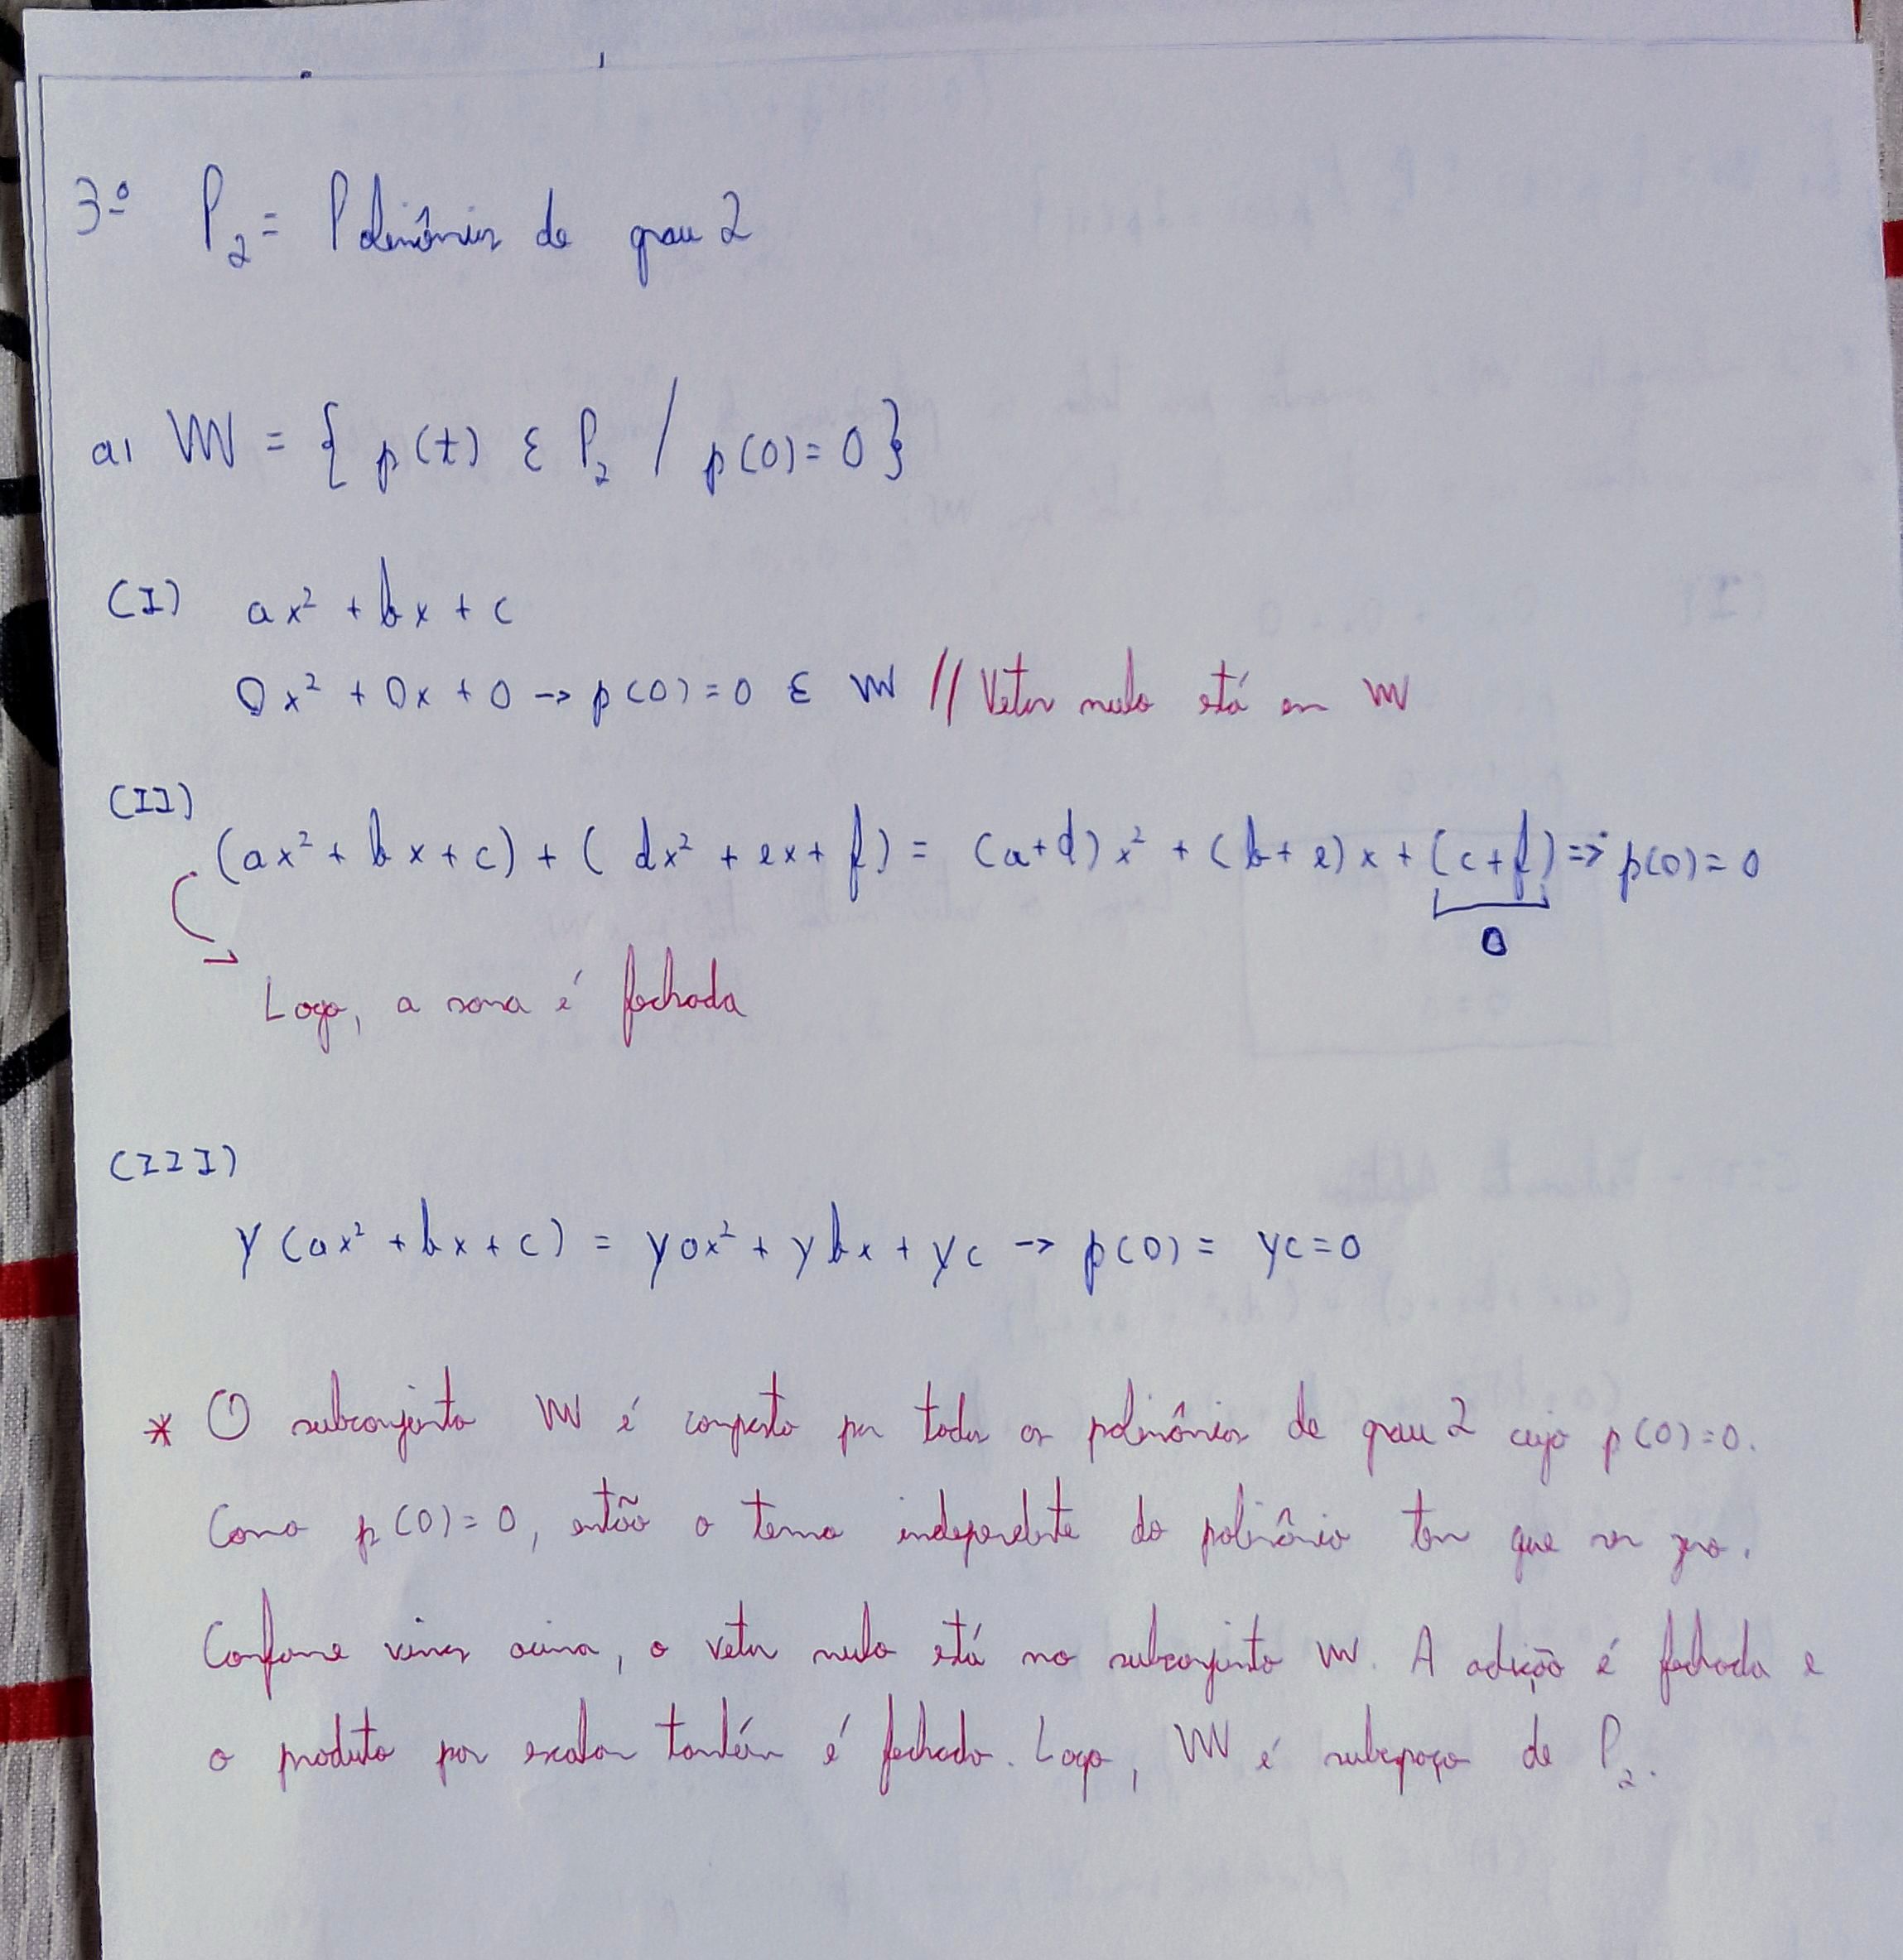 3º P₂ = Polinômios de grau 2
a) W = { p(t) ε P₂ / p(0) = 0 }
(I) ax² + bx + c
0x² + 0x + 0 → p(0) = 0 ε W // Vetor nulo está em W
(II)
(ax² + bx + c) + ( dx² + ex + f) = (a+d) x² + (b+e) x + (c+f) => p(0) = 0
0
Logo, a soma é fechada
(III)
y (ax² + bx + c) = yax² + ybx + yc → p(0) = yc = 0
* O subconjunto W é composto por todos os polinômios de grau 2 cujo p(0)=0.
Como p(0)=0, então o termo independente do polinômio tem que ser zero.
Conforme vimos acima, o vetor nulo está no subconjunto W. A adição é fechada e
o produto por escalar também é fechado. Logo, W é subespaço de P₂.